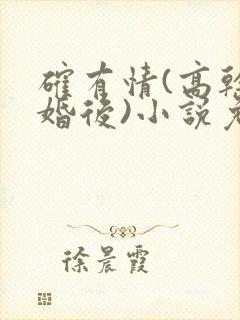 確有情(高幹
婚後)小說免
徐晨霞